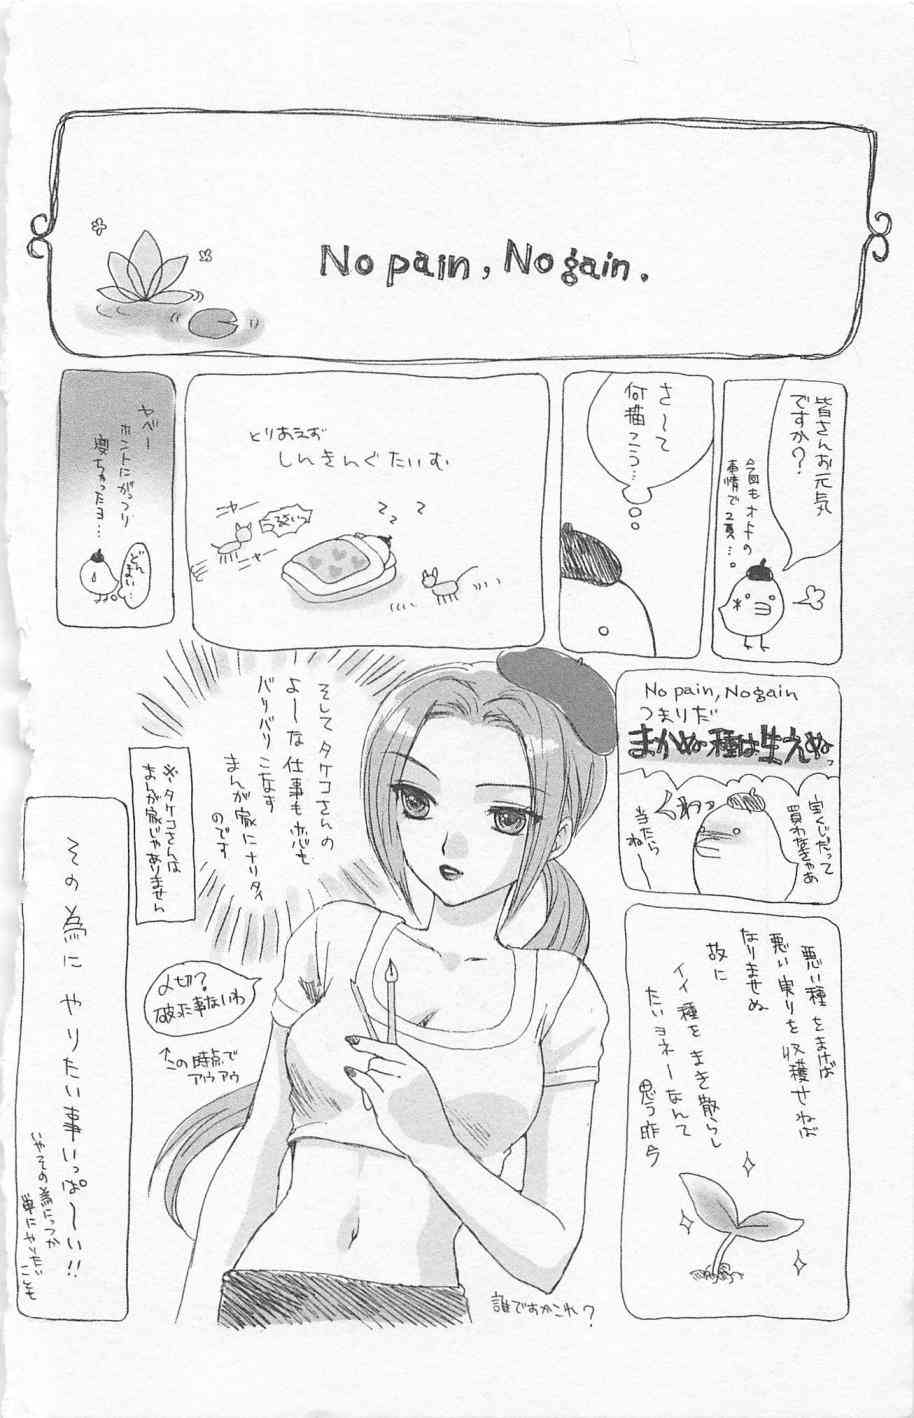 No pain, No gain.
皆さんお元気
ですか?
今回もオトナの
事情で2頁…。
さ〜て
何描こう…
とりあえず
しんきんぐたいむ
ニャー
うるせいっ
ニャー
z z z
ヤベー
ホントにがっつり
寝ちゃったヨ…
どん
まい…
No pain, No gain
つまりだ
まかぬ種は生えぬっ
宝くじだって
買わなきゃあ
くわっ
当たら
ね〜
悪い種をまけば
悪い実りを収穫せねば
なりませぬ
故に
イイ種をまき散らし
たいヨネーなんて
思う昨今
そしてタケコさんの
よ〜な仕事も恋も
バリバリこなす
まんが家にナリタイ
のです
※タケコさんは
まんが家じゃありません
〆切?
破った事ないわ
↑この時点で
アウアウ
誰ですかこれ?
その為に やりたい事いっぱ〜い!!
いやその為につーか
単にやりたい
ことも